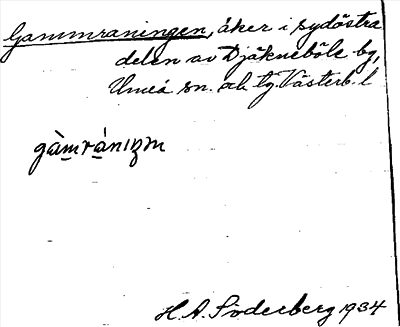 Gammraningen, åker i sydöstra
delen av Djäkneböle bg,
Umeå sn. och tg. Västerb. l
gàmránıŋm
H. A. Söderberg 1934